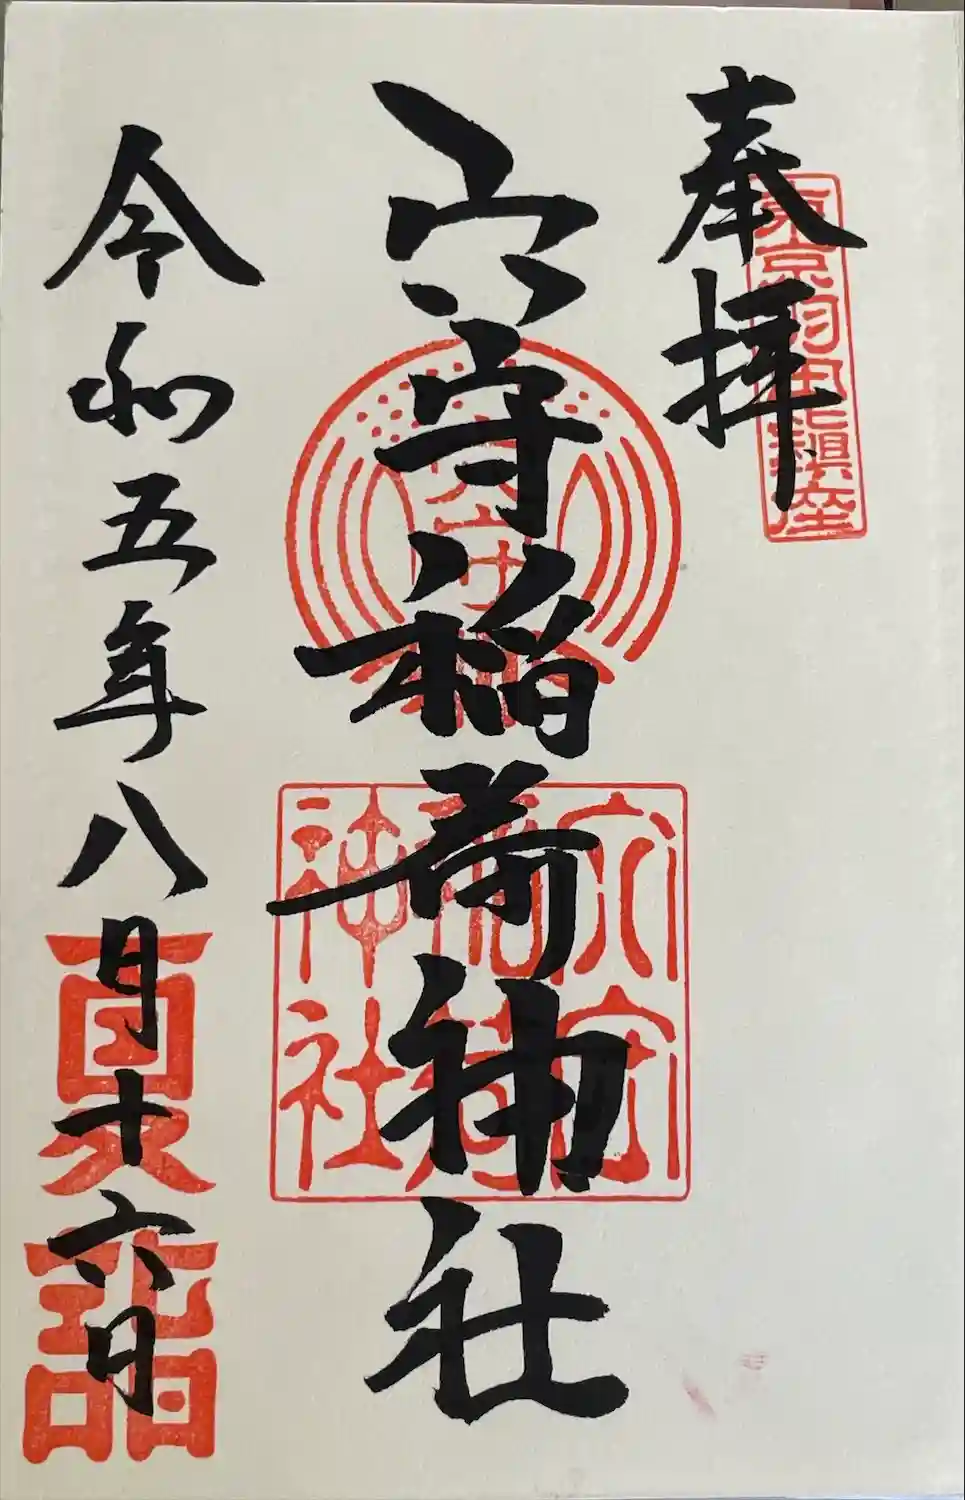 奉拝
東京羽田鎮座
穴守稲荷神社
穴守稲荷神社
令和五年八月十六日
夏詣